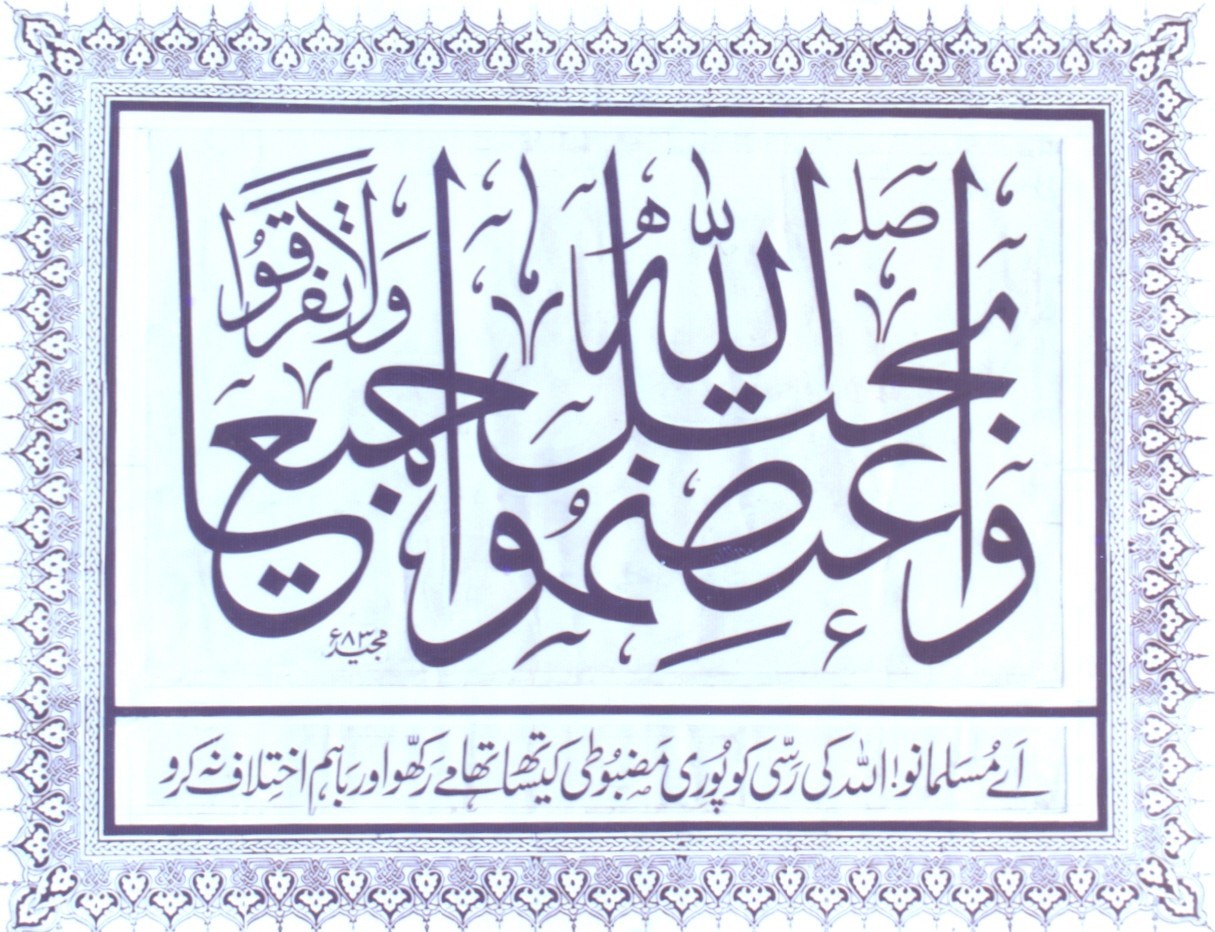 واعتصموا بحبل الله جميعا ولا تفرقوا
صله
مجید ۸۳ء
اَے مُسَلمانو! اللہ کی رَسّی کو پُوری مَضبُوطی کیتھسا تھامے رَکھّو اور بَاہم اختِلاف نَہ کرو